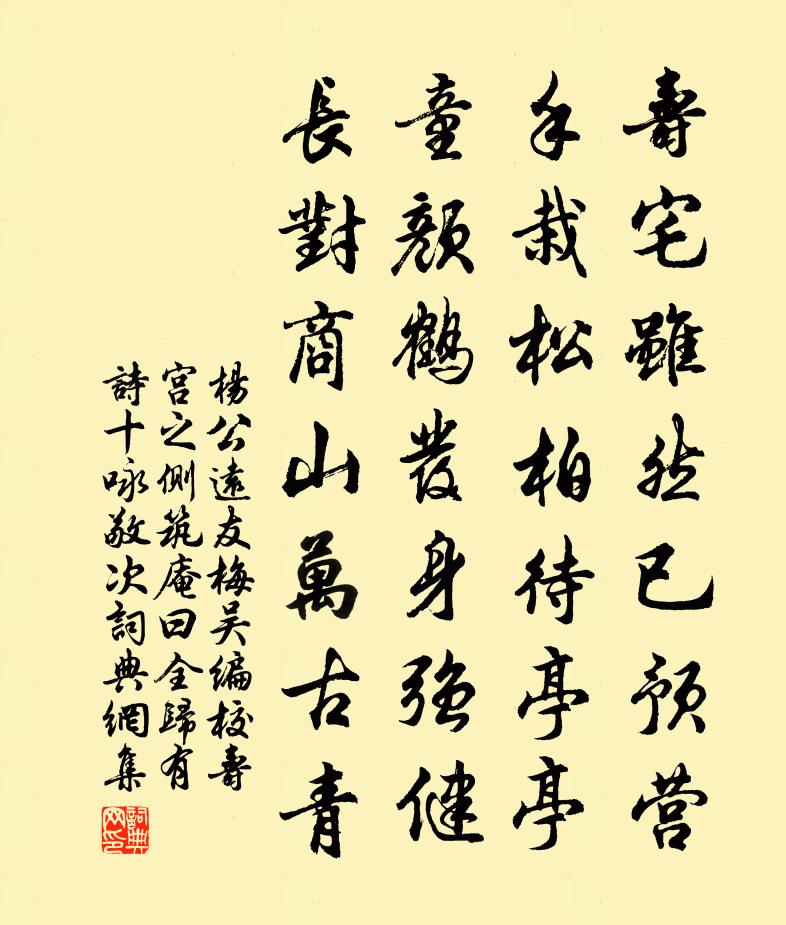 壽宅雖然已預营
手栽松柏待亭亭
童顏鶴發身強健
長對商山萬古青
楊公遠友梅吴编校壽
宫之側筑庵曰全歸有
詩十咏敬次詞典網集
詞典网印